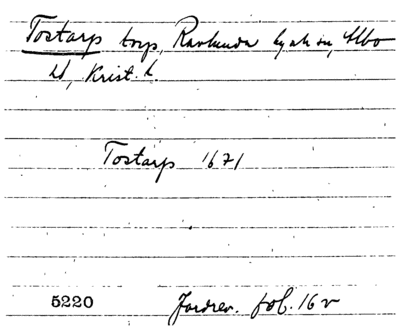 Tostarps torp, Ravlunda by ds sn, Albo
hd, Krist. l.
Tostarp 1671
5220 Jordrev. fol. 16 v